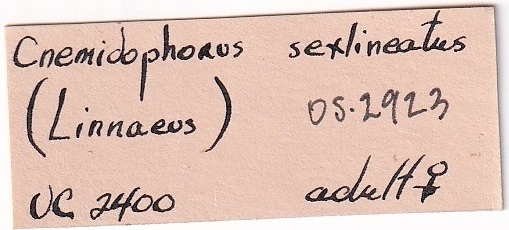 Cnemidophorus sexlineatus
(Linnaeus) OS.2923
UC 2400 adult ♀